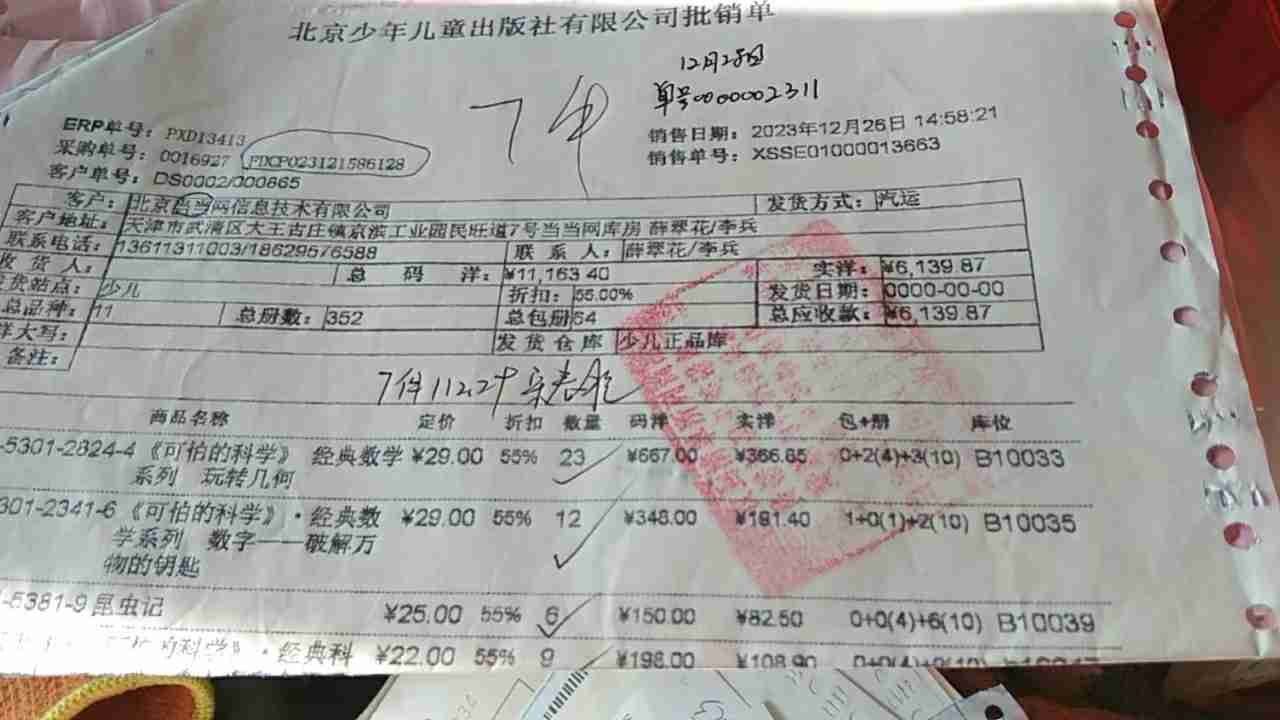 北京少年儿童出版社有限公司批销单
12月28日
单号0000002311
7件
ERP单号: PXD13413
采购单号: 0016927 PDCP023121586128
客户单号: DS0002/000865
销售日期: 2023年12月26日 14:58:21
销售单号: XSSE01000013663
客户: 北京当当网信息技术有限公司 发货方式: 汽运
客户地址: 天津市武清区大王古庄镇京滨工业园民旺道7号当当网库房 薛翠花/李兵
联系电话: 13611311003/18629576588 联系人: 薛翠花/李兵
收货人: 总码洋: ¥11,163.40 实洋: ¥6,139.87
发货站点: 少儿 折扣: 55.00% 发货日期: 0000-00-00
总品种: 11 总册数: 352 总包册64 总应收款: ¥6,139.87
洋大写: 发货仓库 少儿正品库
备注:
7件 1122
商品名称 定价 折扣 数量 码洋 实洋 包+册 库位
-5301-2824-4《可怕的科学》 经典数学 ¥29.00 55% 23 ¥667.00 ¥366.85 0+2(4)+3(10) B10033
系列 玩转几何
301-2341-6《可怕的科学》·经典数 ¥29.00 55% 12 ¥348.00 ¥191.40 1+0(1)+2(10) B10035
学系列 数字——破解万
物的钥匙
-5381-9昆虫记 ¥25.00 55% 6 ¥150.00 ¥82.50 0+0(4)+6(10) B10039
的科学》·经典科 ¥22.00 55% 9 ¥198.00 ¥108.90